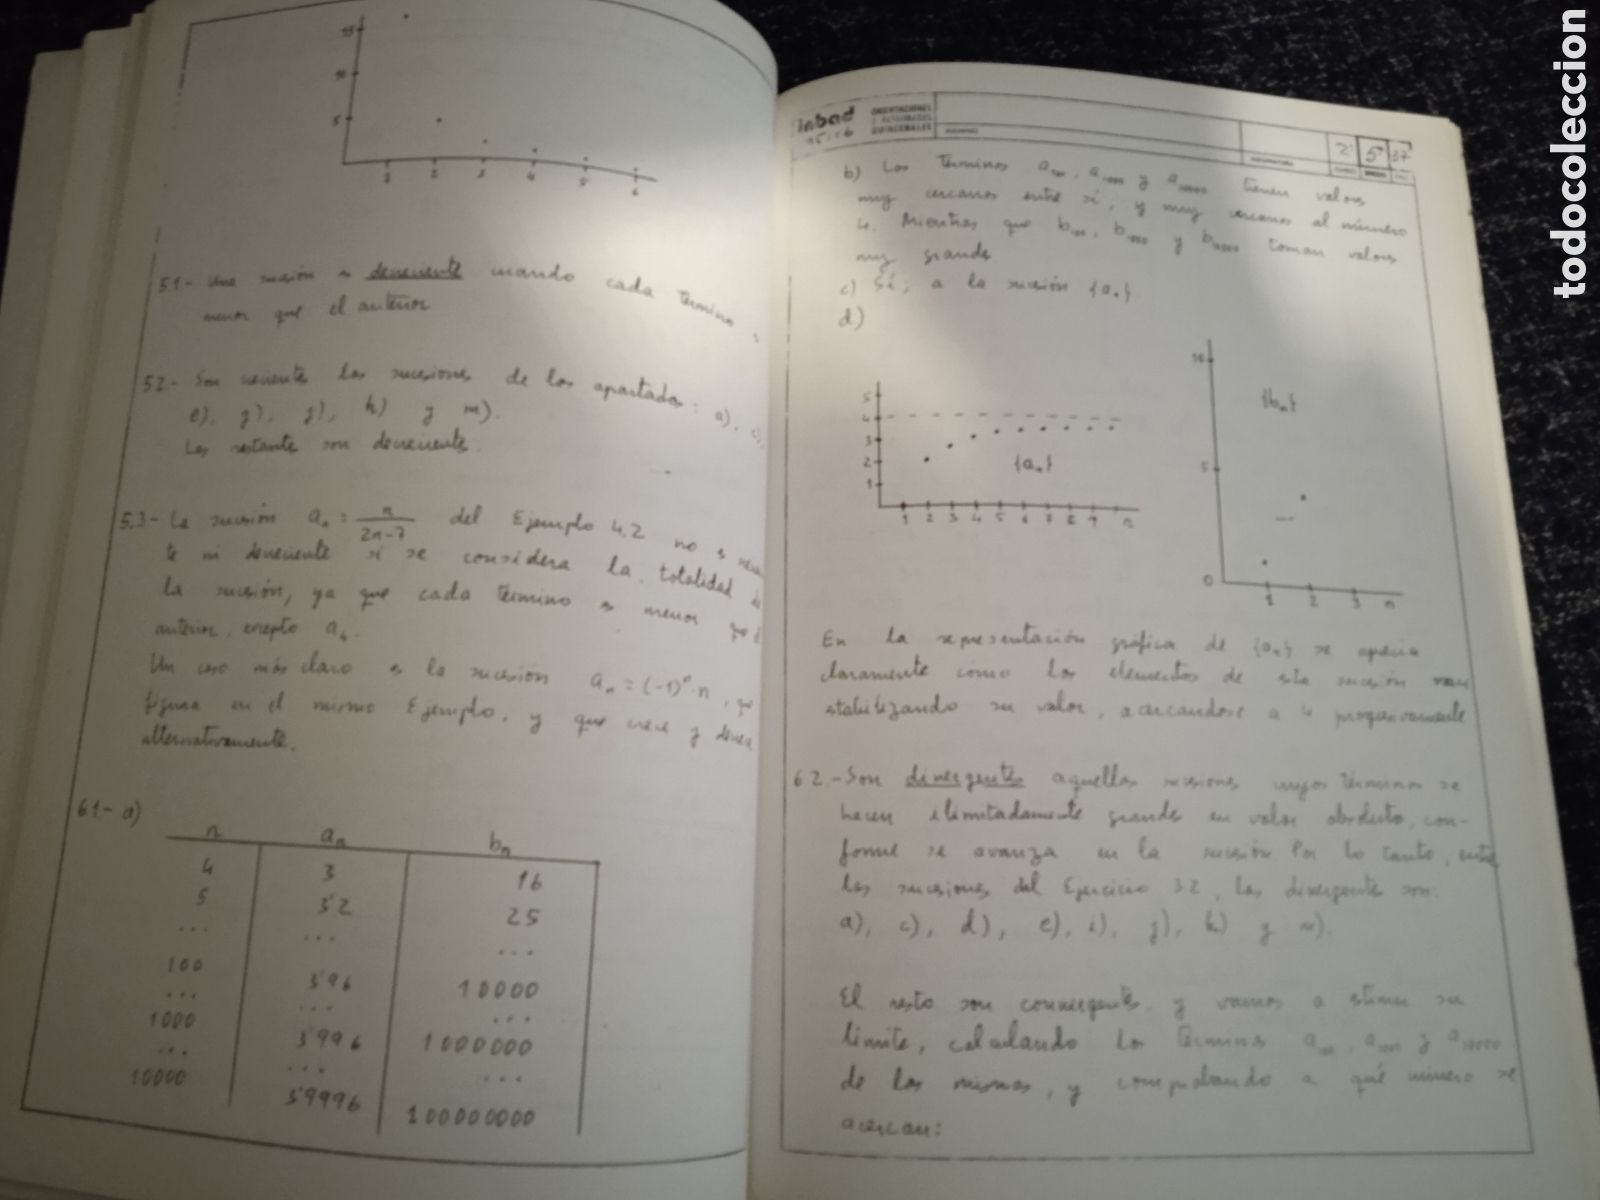 15
10
5
1 2 3 4 5 6
5.1- Una sucesión es decreciente cuando cada término
menor que el anterior
5.2- Son crecientes las sucesiones de los apartados: a), c),
e), g), j), k) y m).
Las restantes son decrecientes.
5.3- La sucesión an = n / 2n-7 del Ejemplo 4.2 no es
te ni decreciente si se considera la totalidad de
la sucesión, ya que cada término es menor que
anterior, excepto a4.
Un caso más claro es la sucesión an = (-1)^n · n, que
figura en el mismo Ejemplo, y que crece y
alternativamente.
6.1- a)
n an bn
4 3 16
5 3'2 25
... ... ...
100 3'96 10000
... ... ...
1000 3'996 1000000
... ... ...
10000 3'9996 100000000
inbad
ORIENTACIONES
Y ACTIVIDADES
QUINCENALES
15/16
ASIGNATURA
2º 5º 37
b) Los términos a100, a1000 y a10000 tienen valores
muy cercanos entre sí, y muy cercanos al número
4. Mientras que b100, b1000 y b10000 toman valores
muy grandes
c) Sí; a la sucesión {an}
d)
5
4
3
2
1
{an}
1 2 3 4 5 6 7 8 9 n
10
5
0
{bn}
1 2 3 n
En la representación gráfica de {an} se aprecia
claramente como los elementos de esta sucesión van
estabilizando su valor, acercandose a 4 progresivamente
6.2.- Son divergentes aquellas sucesiones cuyos términos se
hacen ilimitadamente grandes en valor absoluto, con-
forme se avanza en la sucesión. Por lo tanto, entre
las sucesiones del Ejercicio 3.2, las divergentes son:
a), c), d), e), i), j), k) y m).
El resto son convergentes, y vamos a estimar su
límite, calculando los términos a100, a1000 y a10000
de las mismas, y comprobando a qué número se
acercan:
todocoleccion